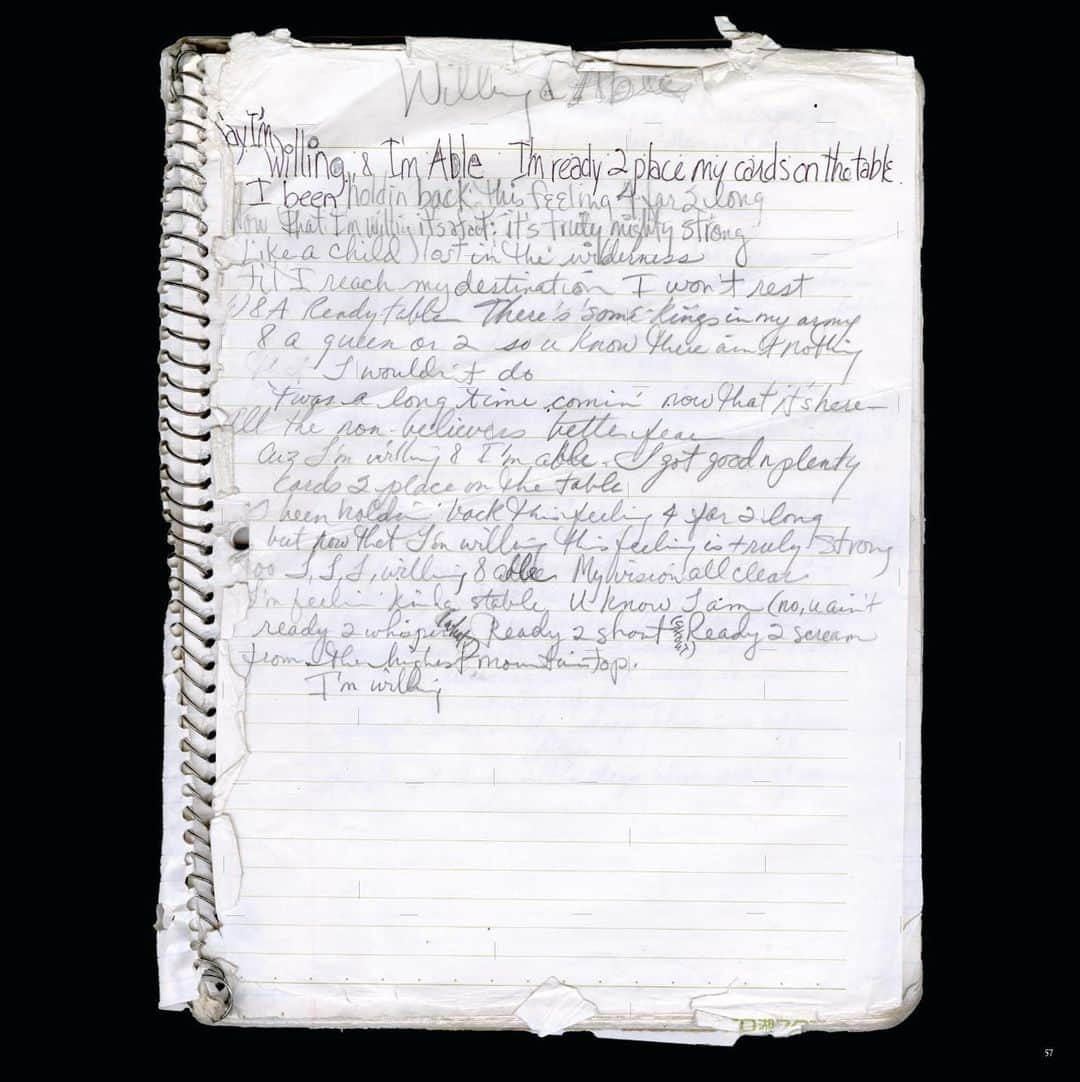 Willing & Able
Say I'm
Willing & I'm Able I'm ready 2 place my cards on the table.
I been holdin back this feeling 4 far 2 long
Now that I'm willing it's truly mighty strong
Like a child lost in the wilderness
til I reach my destination I won't rest
W8A Ready table There's some kings in my army
& a queen or 2 so u know there ain't nothing
I wouldn't do
'twas a long time comin' now that it's here–
All the non-believers better fear
Cuz I'm willing & I'm able. I got good n plenty
Cards 2 place on the table
I been holdin' back this feeling 4 far 2 long
but now that I'm willing this feeling is truly strong
oo I, I, I, willing & able My vision all clear
I'm feelin' kinda stable U know I am (no, u ain't
ready 2 whisper (whisper) Ready 2 shout (shout) Ready 2 scream
from the highest mountaintop.
I'm willing
57